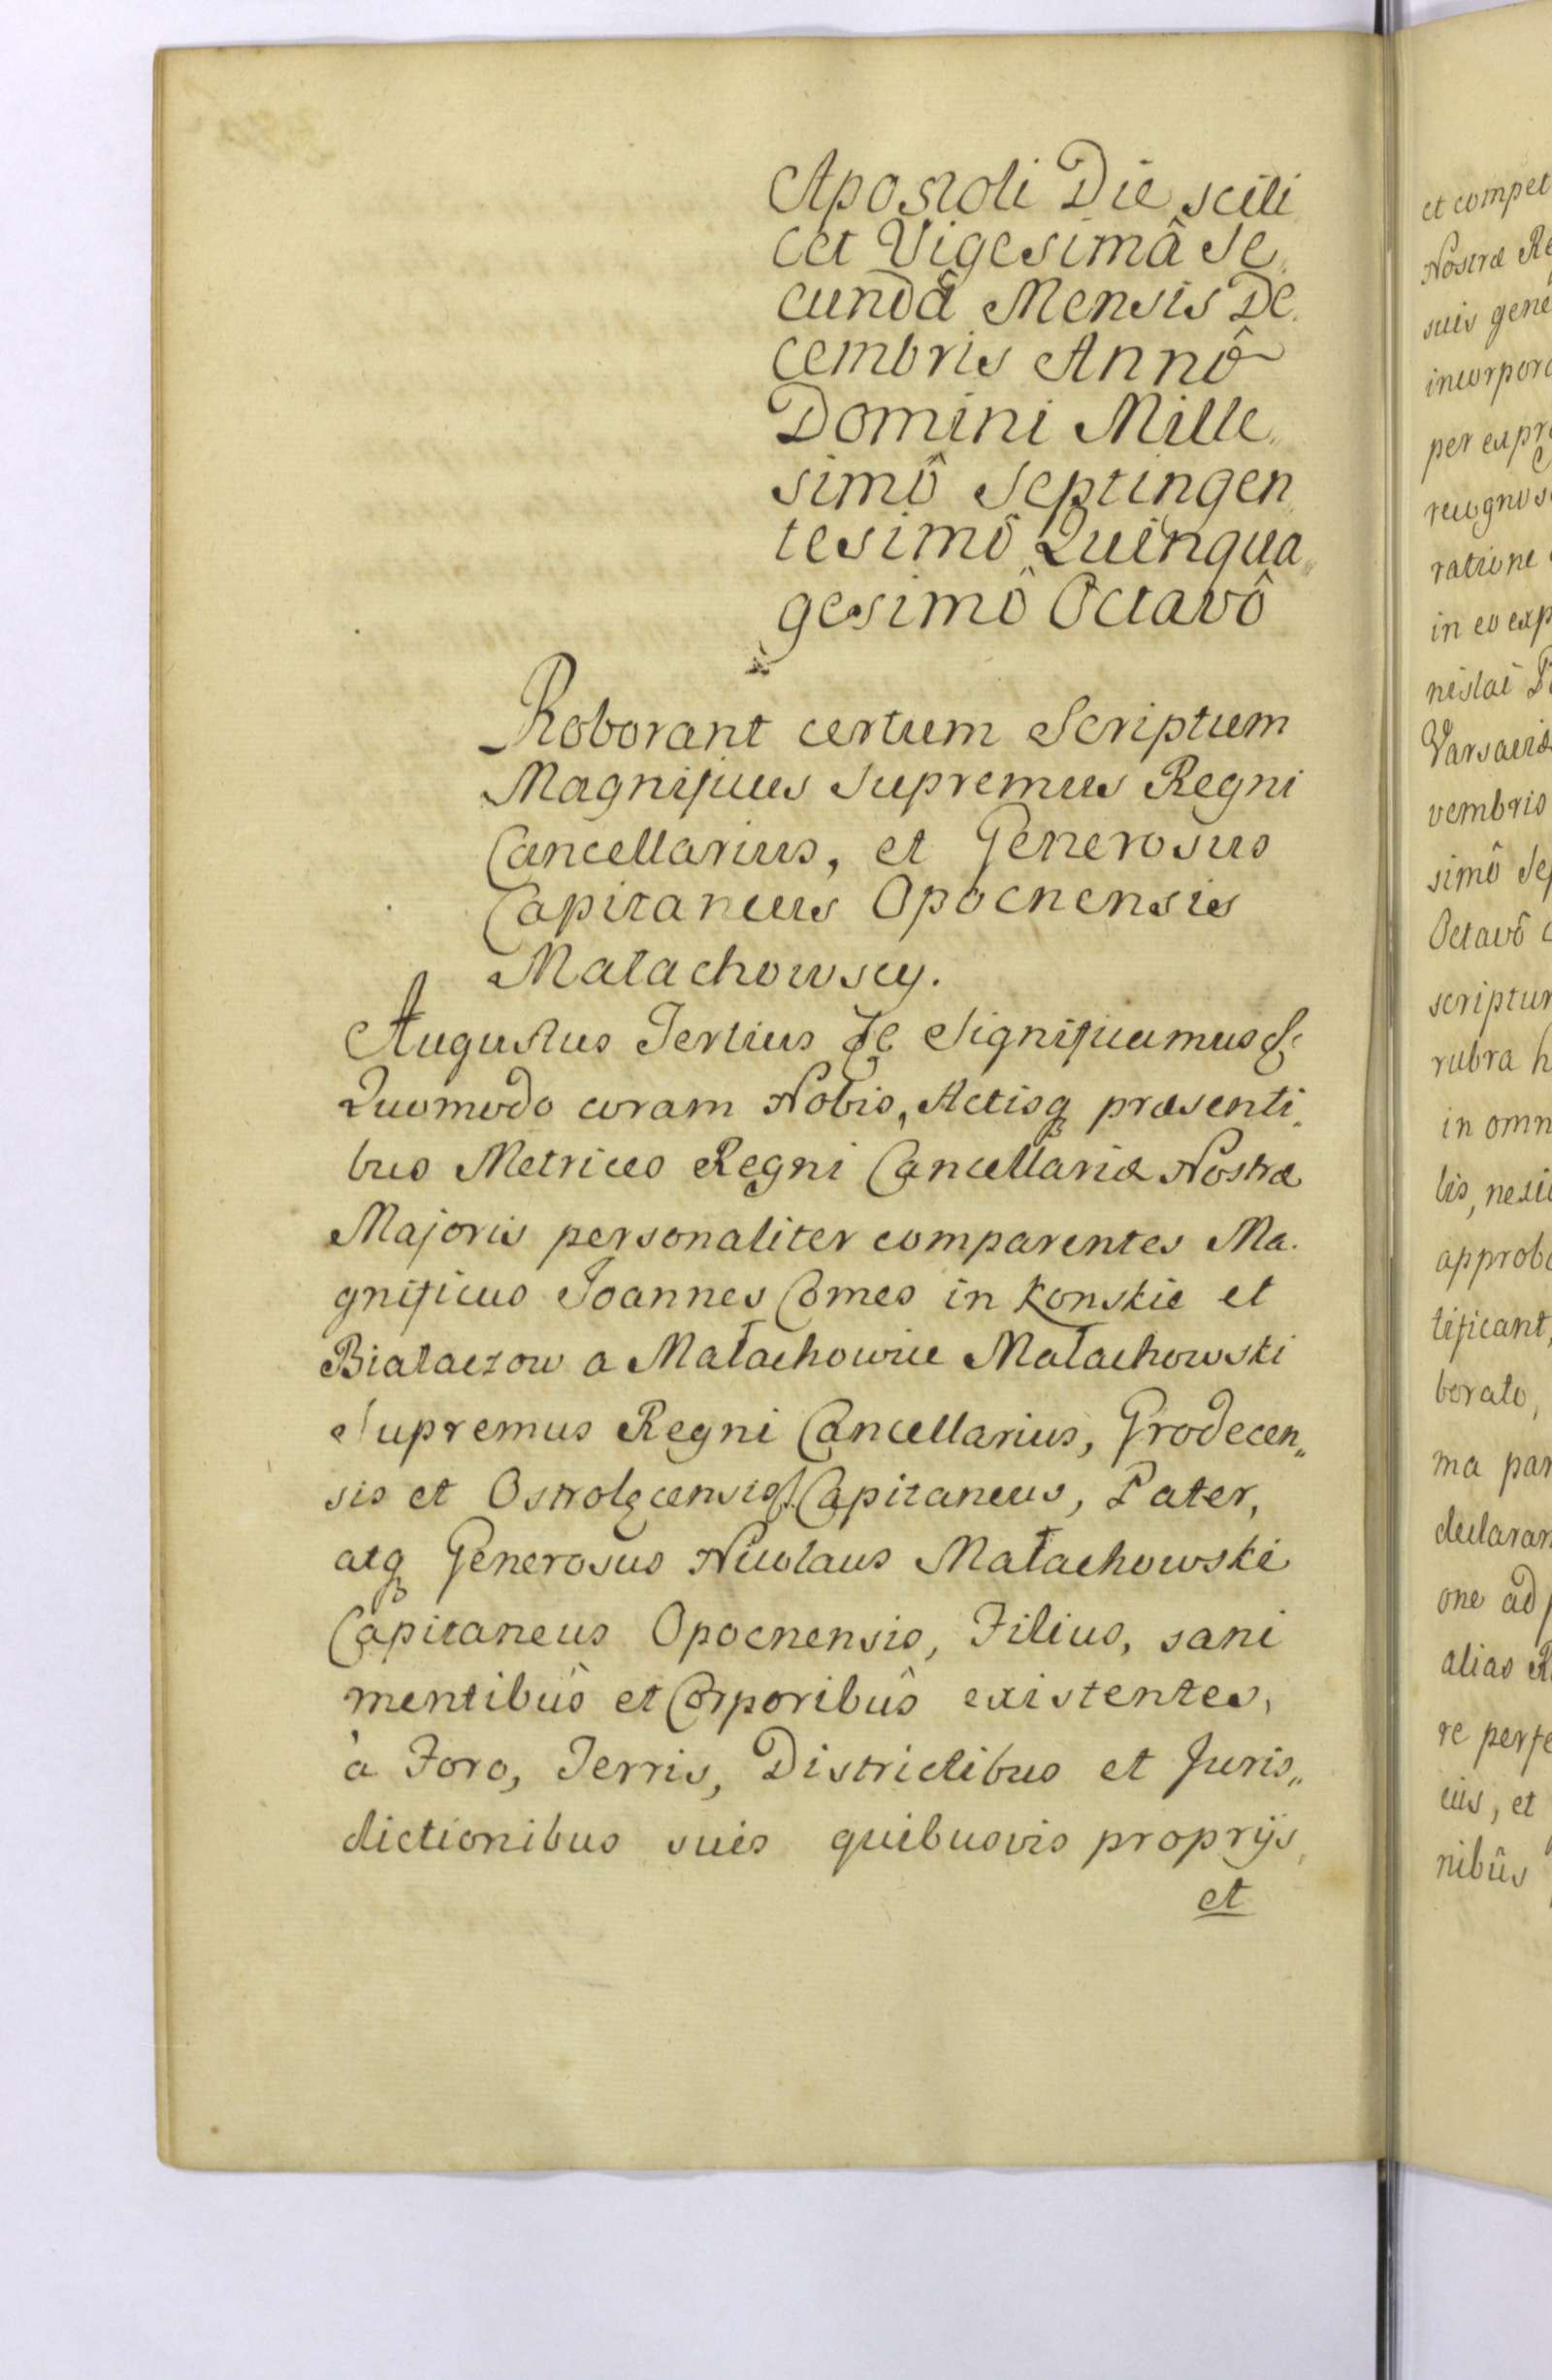 Apostoli Die scili
cet Vigesimâ Se„
cundâ Mensis De„
cembris Annô
Domini Mille„
simô Septingen„
tesimô Quinqua„
gesimô Octavô
Roborant certum Scriptum
Magnificus Supremus Regni
Cancellarius, et Generosus
Capitaneus Opocnensis
Małachowscy.
Augustus Tertius &c Significamus &c
Quomodo coram Nobis, Actisq præsenti„
bus Metrices Regni Cancellariæ Nostræ
Majoris personaliter comparentes Ma„
gnificus Joannes Comes in Konskie et
Białaczow a Małachowice Małachowski
Supremus Regni Cancellarius, Grodecen„
sis et Ostrolęcensis Capitaneus, Pater,
atq Generosus Nicolaus Małachowski
Capitaneus Opocnensis, Filius, sani
mentibûs et Corporibûs existentes,
à Foro, Terris, Districtibus et Juris„
dictionibus suis quibusvis proprijs,
et
et compet
Nostræ Re
suis gene
incorpora
per expre
recognos
ratione
in eo exp
nislai
Varsaviæ
vembris
simô Sep
Octavô
scriptum
rubra h
in omn
lis, nexi
approba
tificant,
borato,
ma par
declaran
one ad
alias R
re perfe
ius, et
nibûs